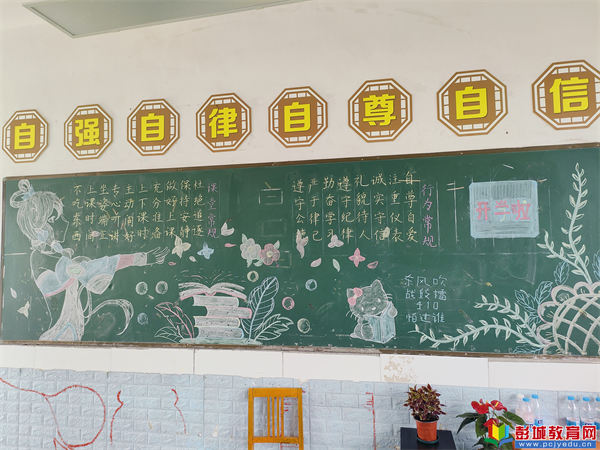 自强自律自尊自信
开学啦
行为常规
自尊自爱
注重仪表
诚实守信
礼貌待人
遵守纪律
勤奋学习
严于律己
遵守公德
课堂常规
杜绝追逐
保持安静
做好上课
充分准备
上下课时
主动问好
专心听讲
坐姿端正
上课时间
不吃东西
东风吹
战鼓擂
410
怕过谁
彭城教育网
www.pcjyedu.cn